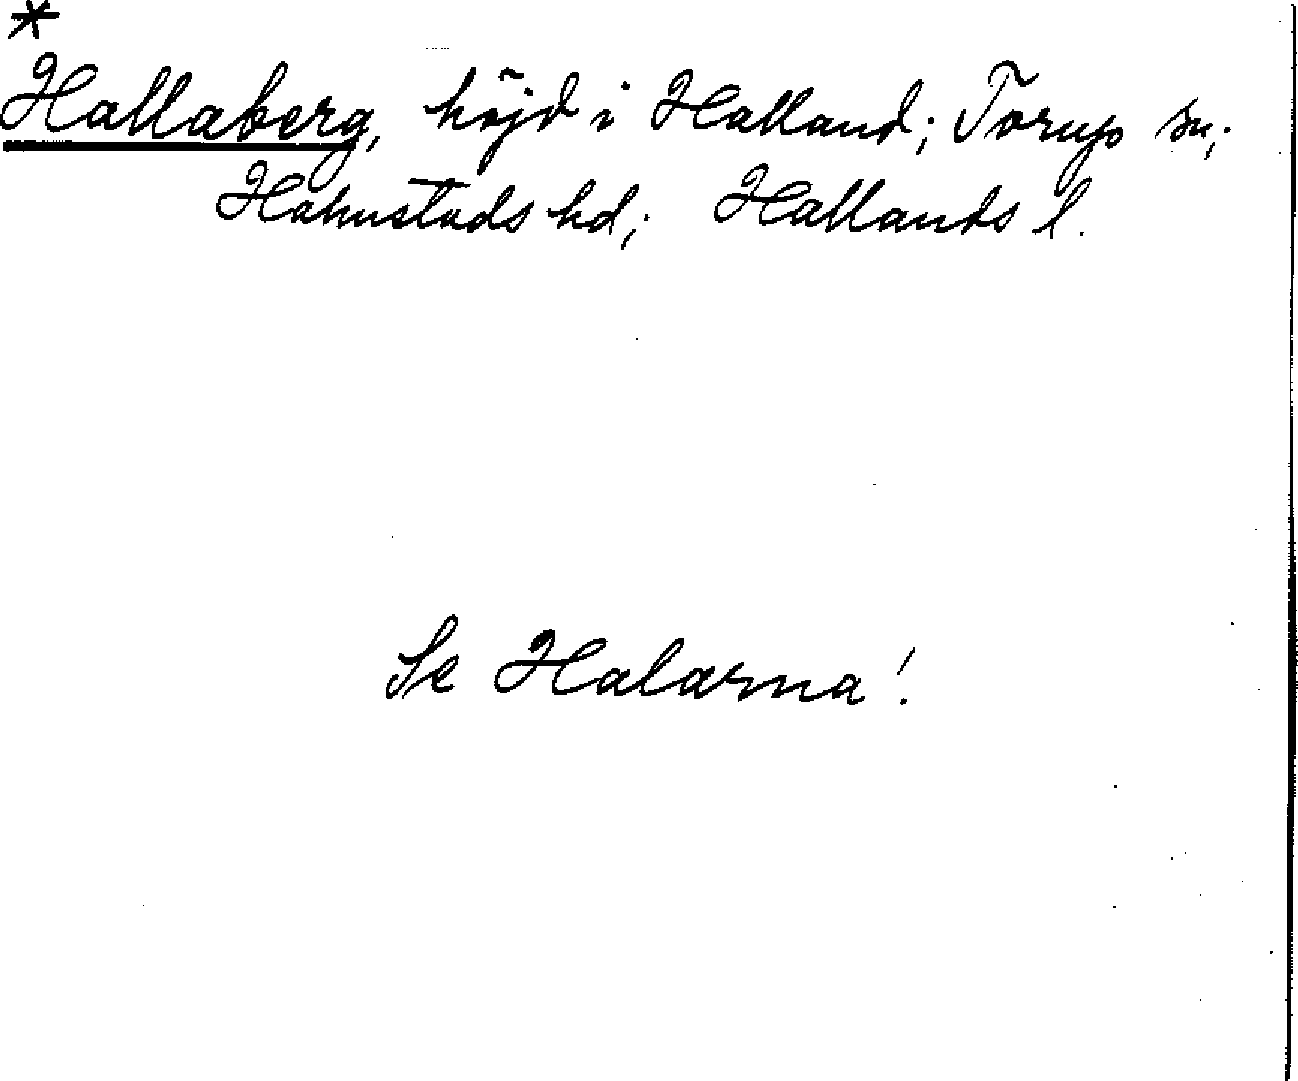 *
Hallaberg, höjd i Halland; Torup sn;
Halmstads hd; Hallands l.
Se Halarna!